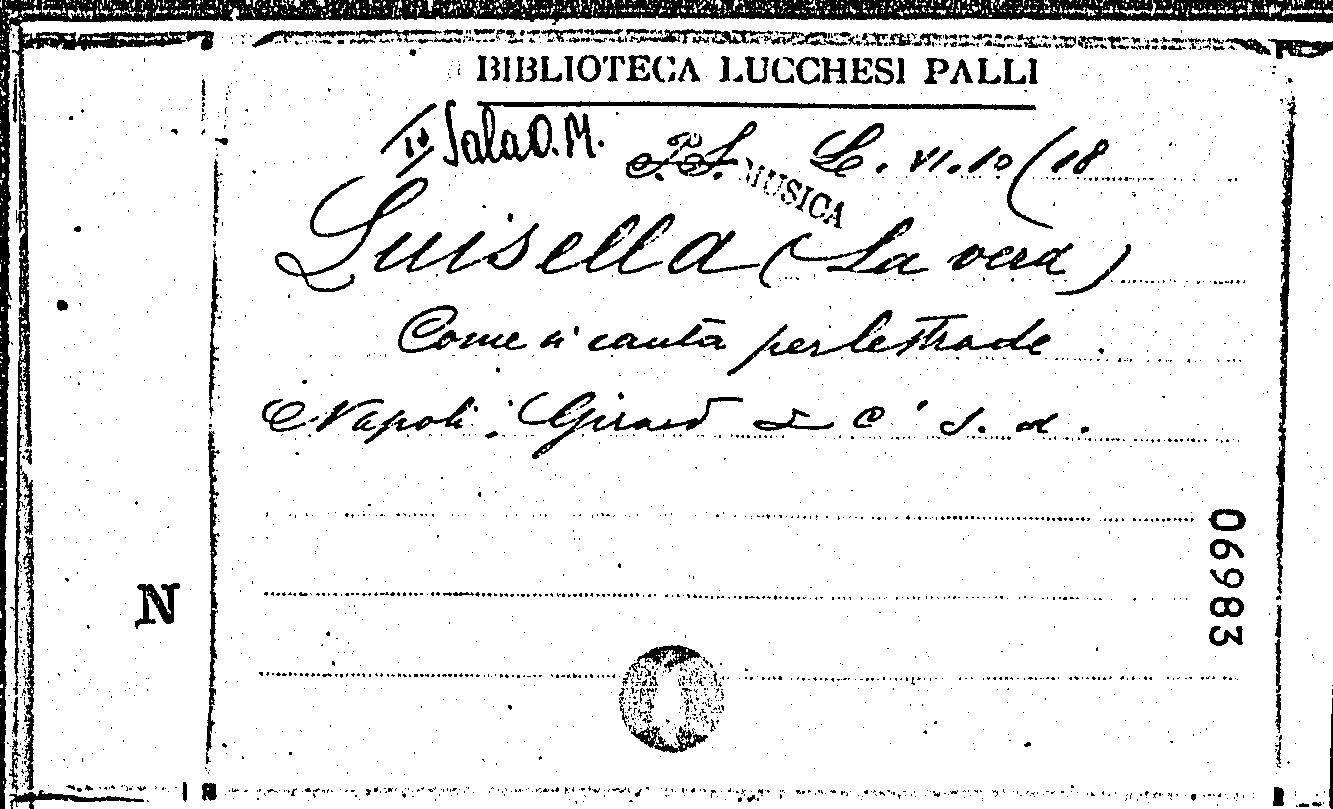 BIBLIOTECA LUCCHESI PALLI
Iª Sala O.M. P.S. L. VI. 10 (18
MUSICA
Luisella (La vera)
Come si canta per le strade
Napoli; Girard & C' s. d.
06983
N